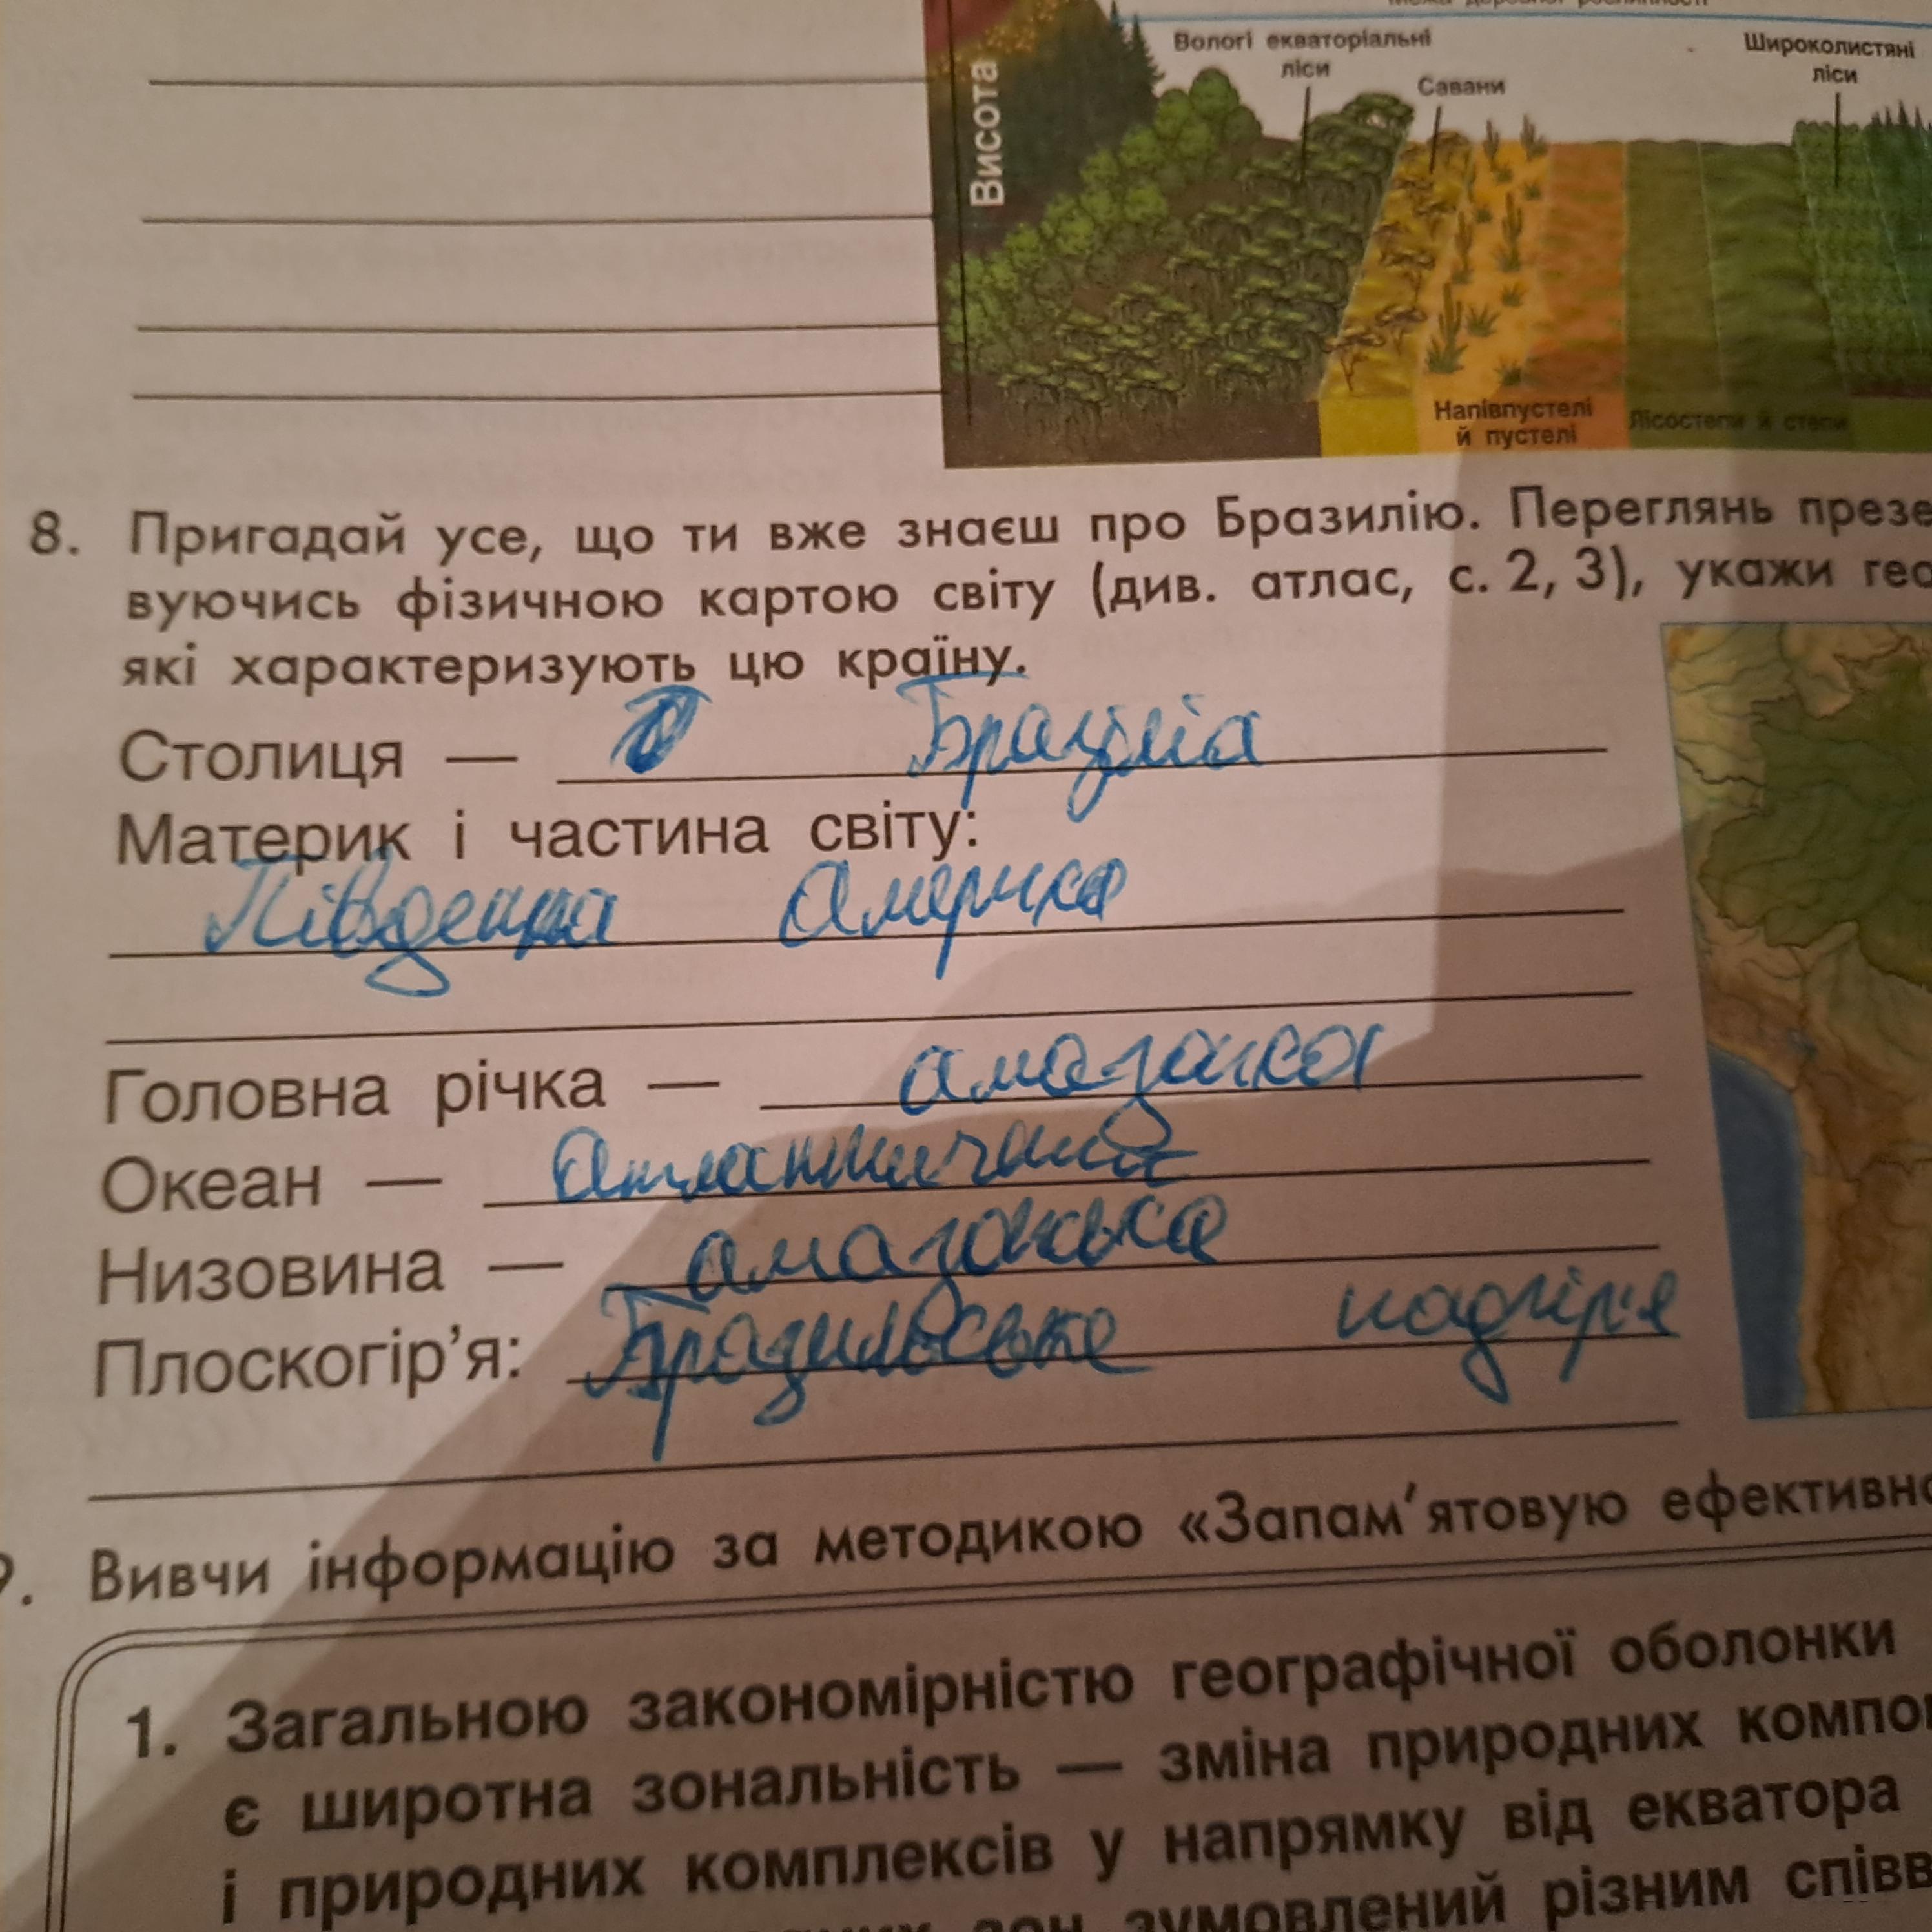 Межа деревної рослинності
Вологі екваторіальні
ліси
Савани
Широколистяні
ліси
Висота
Напівпустелі
й пустелі
Лісостепи й степи
8. Пригадай усе, що ти вже знаєш про Бразилію. Переглянь презе
вуючись фізичною картою світу (див. атлас, с. 2, 3), укажи гео
які характеризують цю країну.
Столиця — Бразиліа
Материк і частина світу:
Південна Америка
Головна річка — амазонка
Океан — Атлантичний
Низовина — амазонська
Плоскогір’я: Бразильське нагір'я
9. Вивчи інформацію за методикою «Запам’ятовую ефективно
1. Загальною закономірністю географічної оболонки
є широтна зональність — зміна природних компо
і природних комплексів у напрямку від екватора
зон, зумовлений різним співв